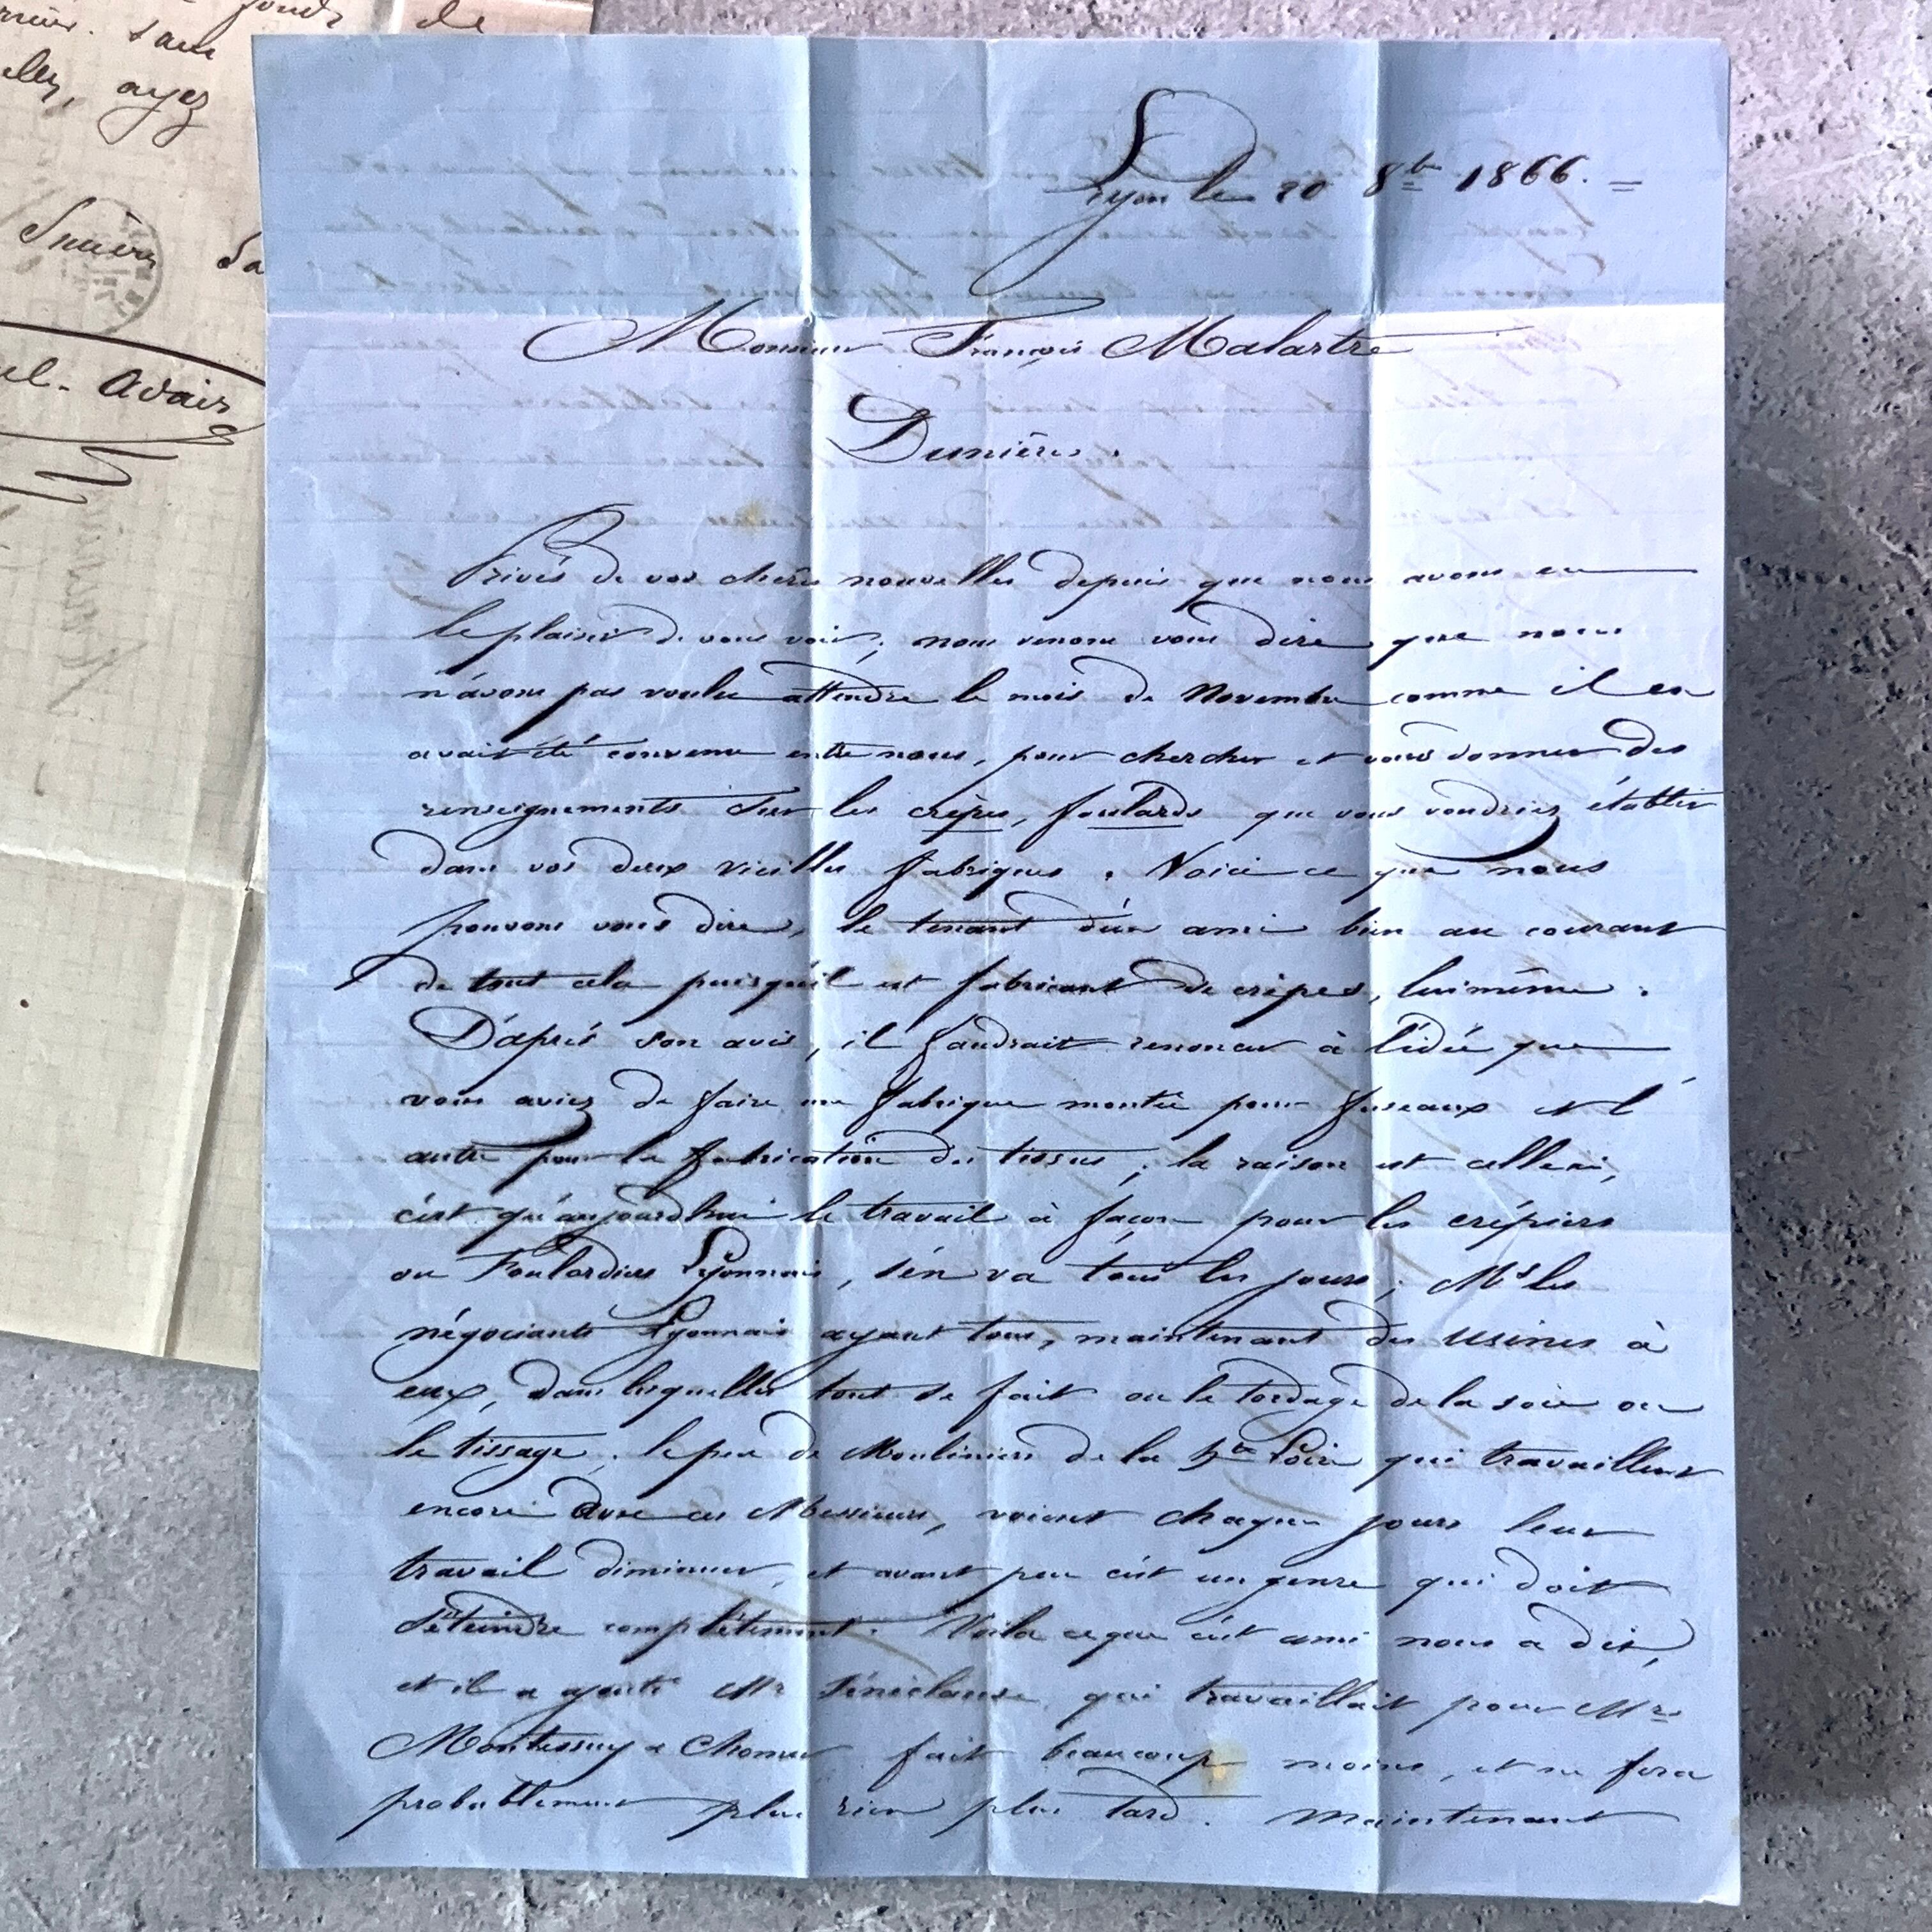 fonds de
sans
ayez
Avair
Lyon le 20 8bre 1866. =
Monsieur François Malartre
Dunières.
Privés de vos chères nouvelles depuis que nous avons eu
le plaisir de vous voir, nous venons vous dire que nous
n'avons pas voulu attendre le mois de Novembre comme il en
avait été convenu entre nous, pour chercher et vous donner des
renseignements sur les crêpes, foulards que vous voudriez établir
dans vos deux vieilles fabriques. Voici ce que nous
pouvons vous dire, le tenant d'un ami bien au courant
de tout cela puisqu'il est fabricant de crêpes, lui même.
D'après son avis, il faudrait renoncer à l'idée que
vous aviez de faire une fabrique montée pour fuseaux et l'
autre pour la fabrication des tissus; la raison est celle ci,
c'est qu'aujourd'hui le travail à façon pour les crépiers
ou Foulardiers Lyonnais, s'en va tous les jours; Mrs les
négociants Lyonnais ayant tous, maintenant des usines à
eux, dans lesquelles tout se fait ou le tordage de la soie ou
le tissage. le peu de Mouliniers de la hte Loire qui travaillent
encore avec ces Messieurs, voient chaque jours leur
travail diminuer, et avant peu c'est un genre qui doit
s'éteindre complètement. Voila ce que cet ami nous a dit,
et il a ajouté Mr Sénéclause qui travaillait pour Mrs
Montessuy & Chomer fait beaucoup moins, et ne fera
probablement plus rien plus tard. Maintenant